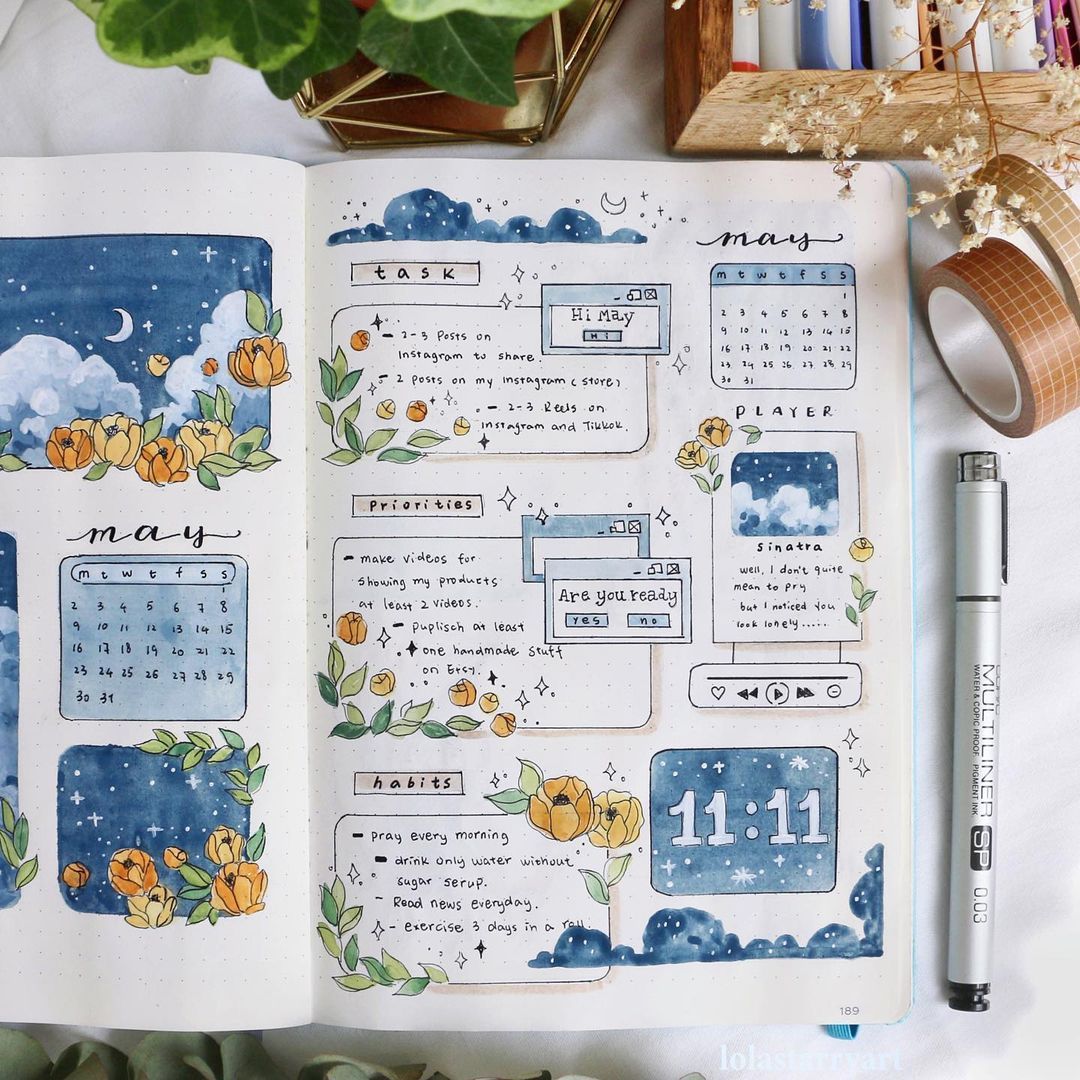 may
m t w t f s s
1
2 3 4 5 6 7 8
9 10 11 12 13 14 15
16 17 18 19 20 21 22
23 24 25 26 27 28 29
30 31
task
Hi May
Hi
- 2-3 Posts on
Instagram to share
- 2 posts on my Instagram (store)
- 2-3 Reels on
Instagram and Tikkok.
Priorities
- make videos for
showing my products
at least 2 videos.
- puplisch at least
one handmade stuff
on Etsy.
Are you ready
yes no
habits
- pray every morning
- drink only water without
sugar serup.
- Read news everyday.
- exercise 3 days in a
may
m t w t f s s
1
2 3 4 5 6 7 8
9 10 11 12 13 14 15
16 17 18 19 20 21 22
23 24 25 26 27 28 29
30 31
PLAYER
Sinatra
well, I don't quite
mean to pry
but I noticed you
look lonely.....
11:11
189
MULTILINER SP 0.03
WATER & COPIC PROOF PIGMENT INK
lolastarryart